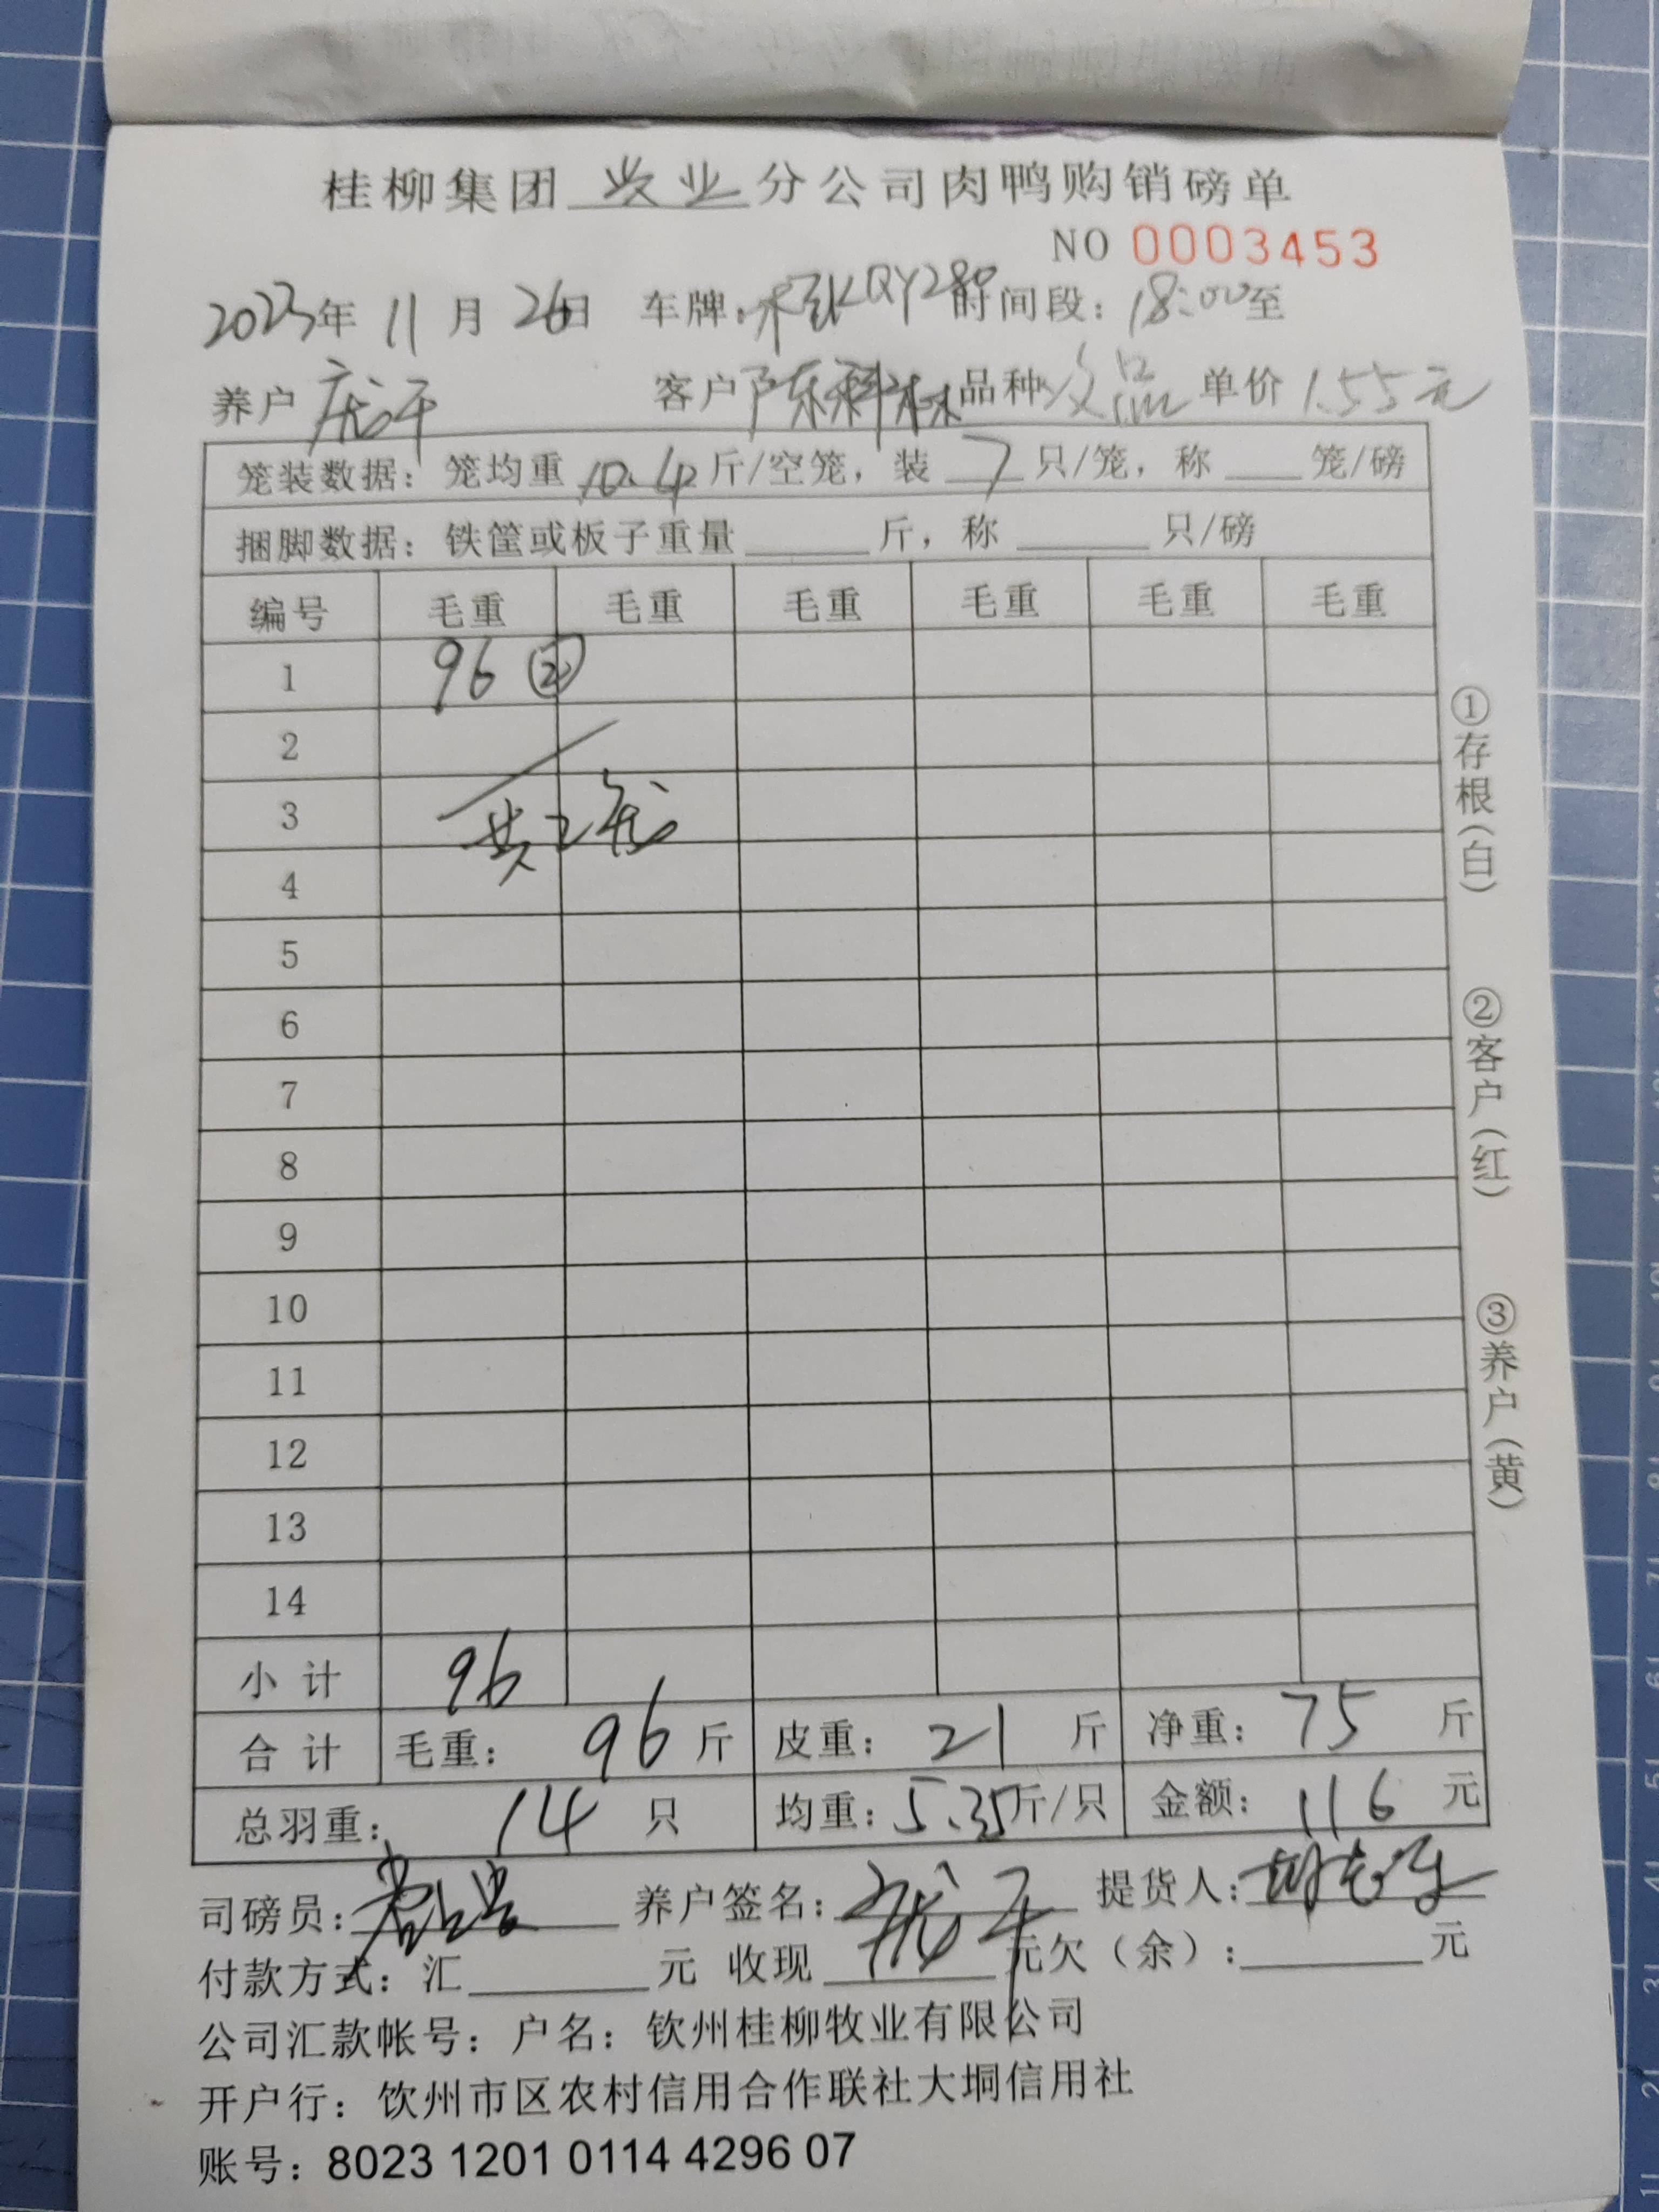 桂柳集团 兴业 分公司肉鸭购销磅单
NO 0003453
2023年 11 月 26日 车牌: KQY280 时间段: 18:00至
养户 客户 陈科林 品种 次品 单价 1.55元
笼装数据: 笼均重 10.4 斤/空笼, 装 7 只/笼, 称 ____ 笼/磅
捆脚数据: 铁筐或板子重量 ______ 斤, 称 ______ 只/磅
编号 毛重 毛重 毛重 毛重 毛重 毛重
1 96 ②
2
3 共2笼
4
5
6
7
8
9
10
11
12
13
14
小计 96
合计 毛重: 96 斤 皮重: 21 斤 净重: 75 斤
总羽重: 14 只 均重: 5.35斤/只 金额: 116 元
司磅员: 养户签名: 提货人:
付款方式: 汇________元 收现________元欠(余):________元
公司汇款帐号: 户名: 钦州桂柳牧业有限公司
开户行: 钦州市区农村信用合作联社大垌信用社
账号: 8023 1201 0114 4296 07
①存根(白)
②客户(红)
③养户(黄)